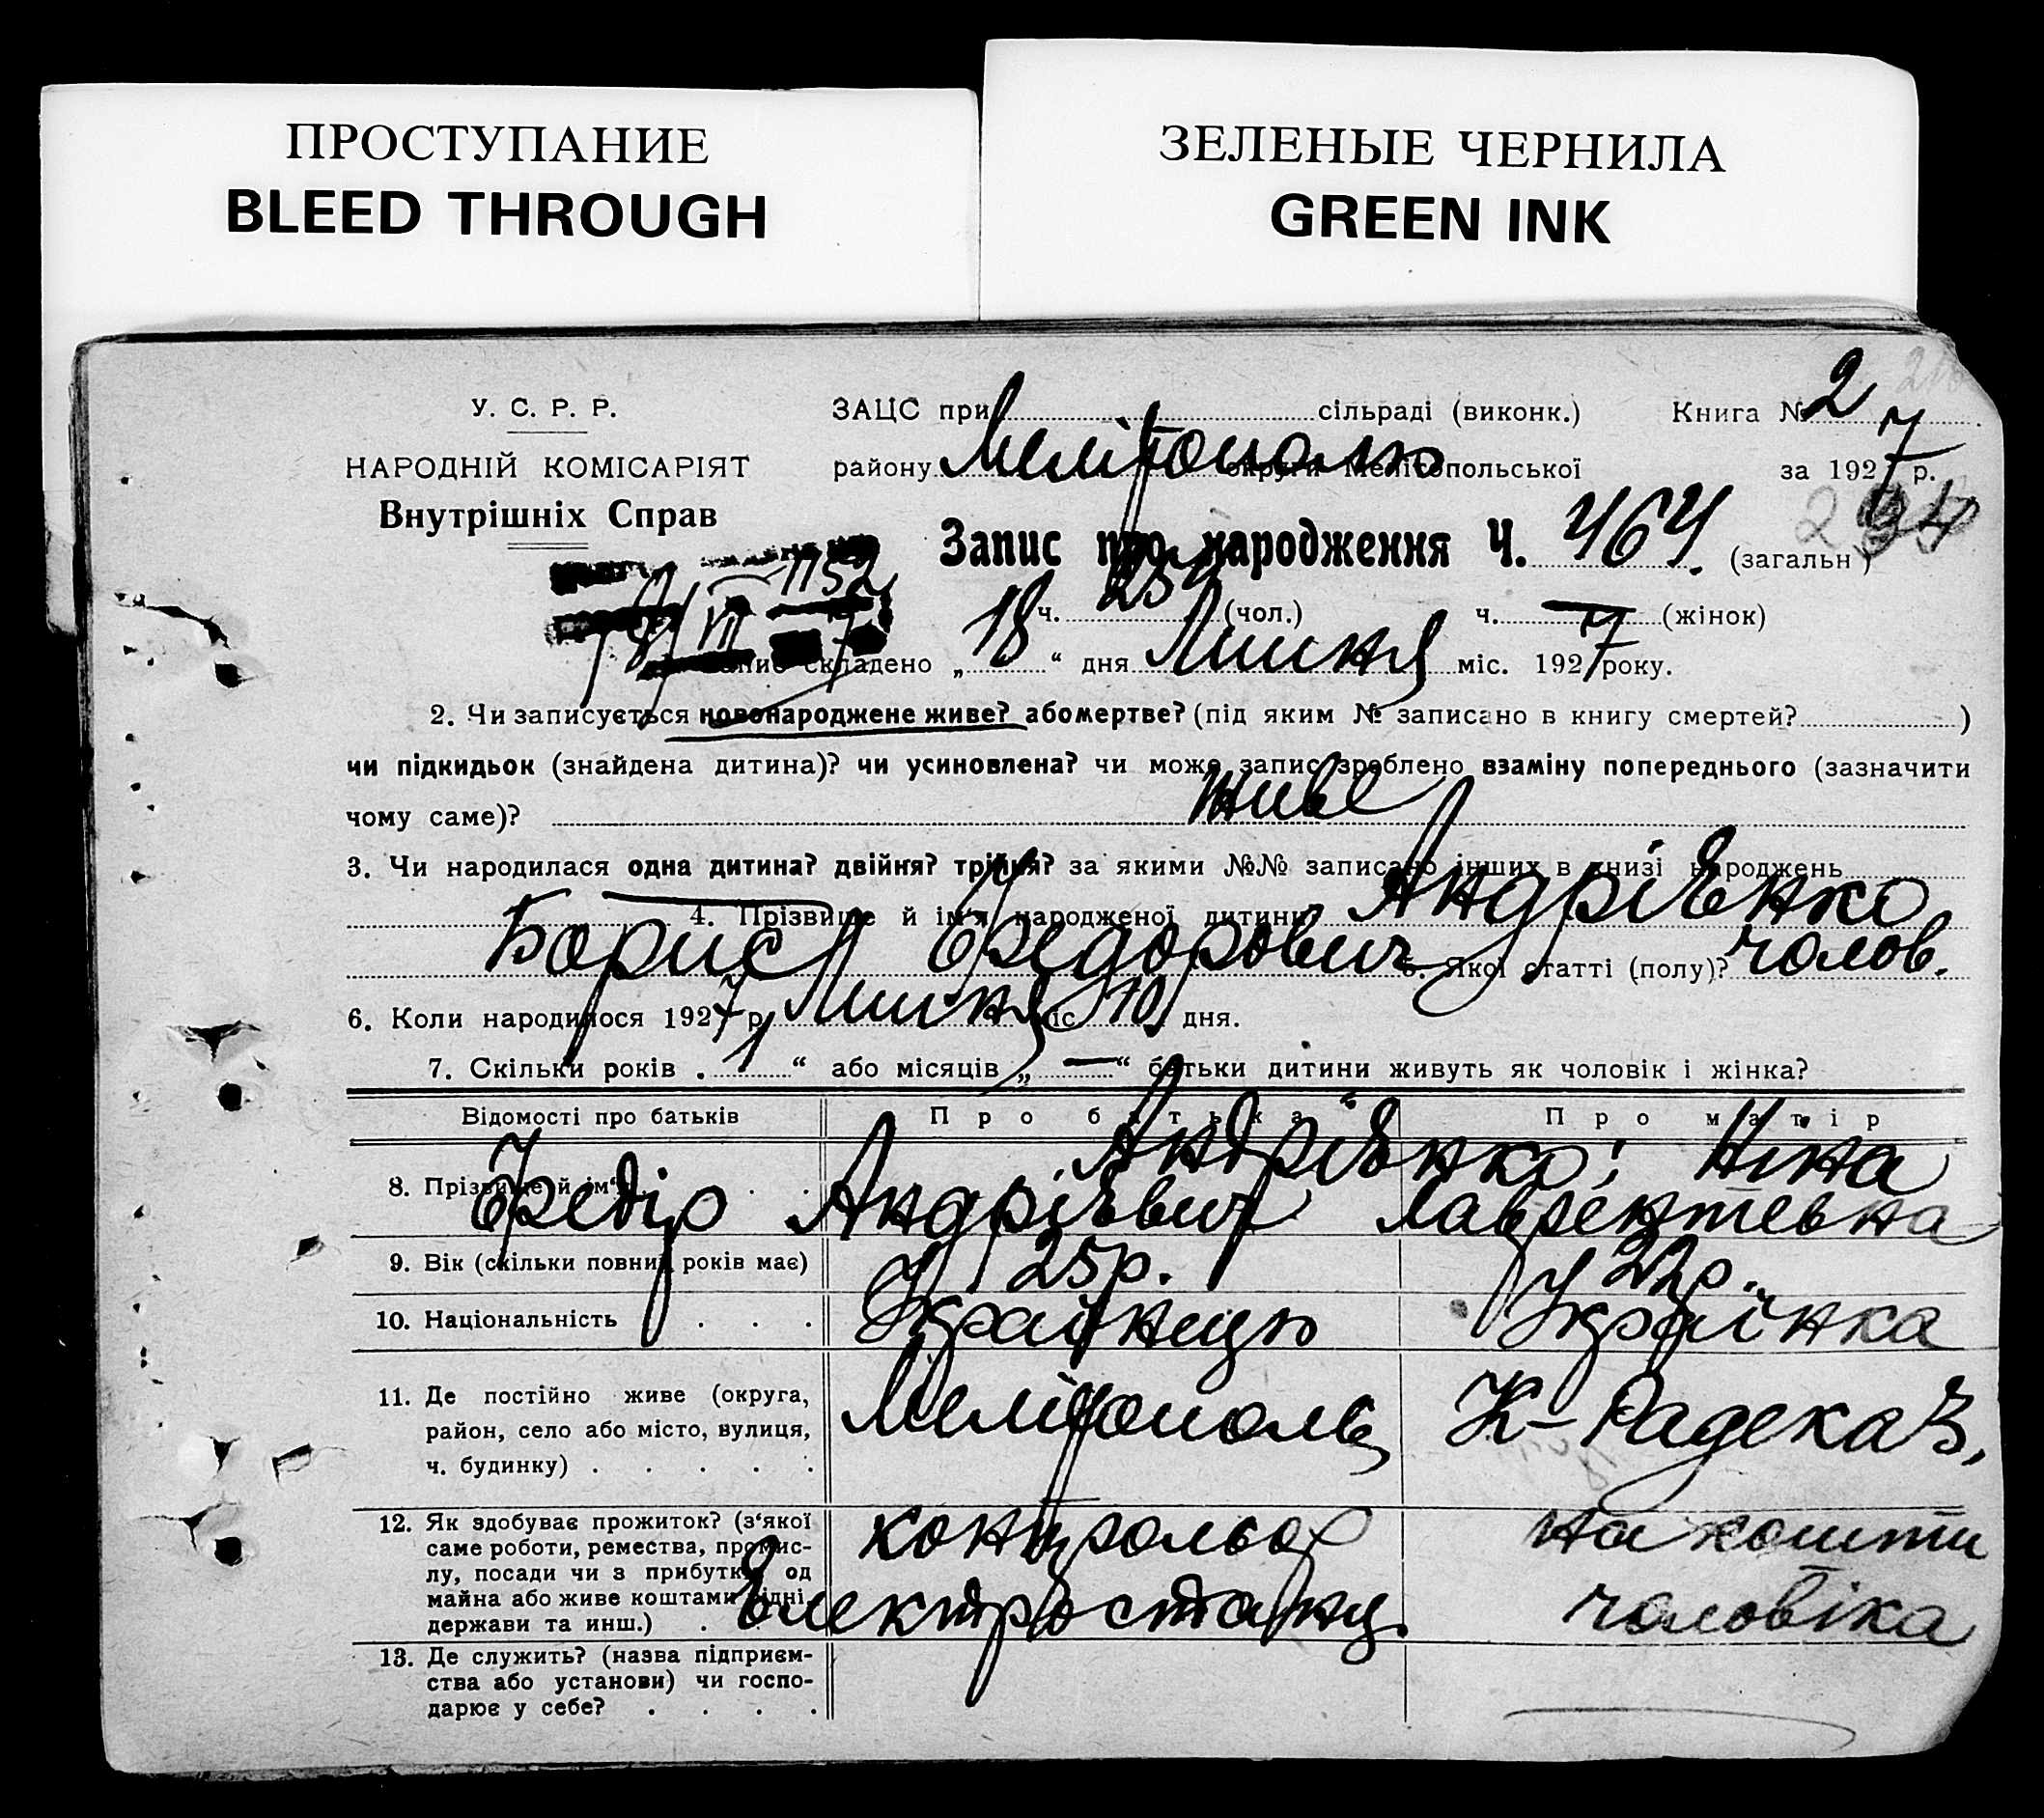 ПРОСТУПАНИЕ
BLEED THROUGH
ЗЕЛЕНЫЕ ЧЕРНИЛА
GREEN INK
У. С. Р. Р.
НАРОДНІЙ КОМІСАРІЯТ
Внутрішніх Справ
ЗАЦС при сільраді (виконк.) Книга № 2
району Мелітополю округи Мелітопольської за 1927 р.
Запис про народження Ч. 464. (загальн)
ч. 257 (чол.) ч. — (жінок)
складено „ 18 “ дня Липня міс. 1927 року.
2. Чи записується новонароджене живе? або мертве? (під яким № записано в книгу смертей? )
чи підкидьок (знайдена дитина)? чи усиновлена? чи може запис зроблено взаміну попереднього (зазначити
чому саме)? живе
3. Чи народилася одна дитина? двійня? трійня? за якими №№ записано інших в книзі народжень
4. Прізвище й ім'я народженої дитини Андрієнко
Борис Федорович 5. Якої статті (полу)? чолов.
6. Коли народилося 1927 р. Липня міс. 10 дня.
7. Скільки років . 1 “ або місяців „ — “ батьки дитини живуть як чоловік і жінка?
Відомості про батьків Про батька Про матір
Андрієнко: Ніна
8. Прізвище й ім'я . .
Федір Андрієвич Лаврентевна
9. Вік (скільки повних років має) 25р. 22р.
10. Національність . . . Українець Українка
11. Де постійно живе (округа,
район, село або місто, вулиця,
ч. будинку) . . . . .
Мелітополь К-Радека 3,
12. Як здобуває прожиток? (з'якої
саме роботи, ремества, промис-
лу, посади чи з прибутків од
майна або живе коштами рідні,
держави та инш.) .
контрольор
Електростанц.
на кошти
чоловіка
13. Де служить? (назва підприєм-
ства або установи) чи госпо-
дарює у себе? . . . .